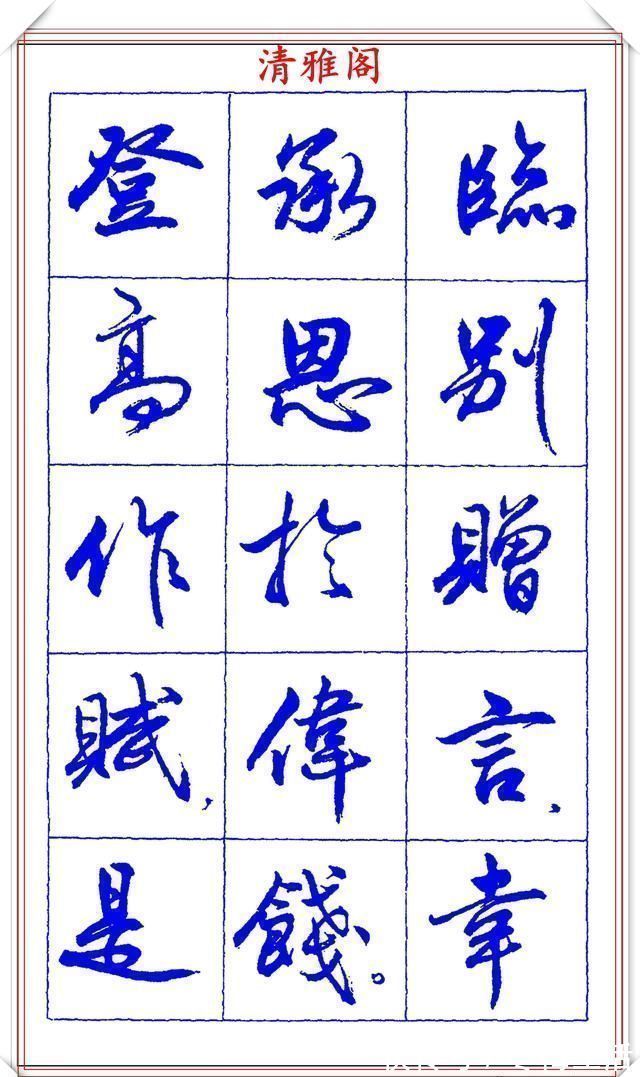 清雅阁
臨別贈言，幸
承恩於偉餞。
登高作賦，是